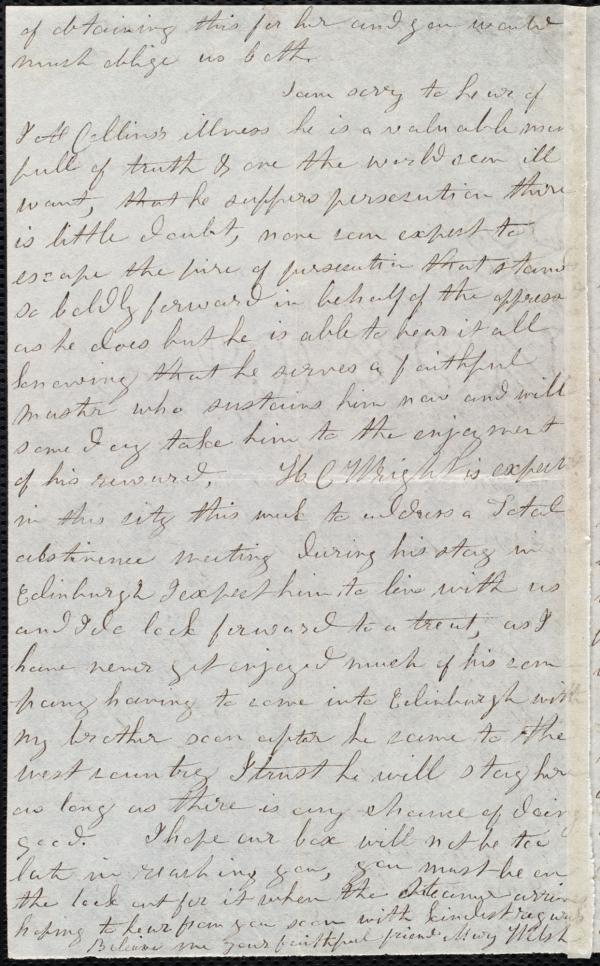 of obtaining this for her and you would
much oblige us both.
I am sorry to hear of
J A Collins's illness he is a valuable man
full of truth & one the world can ill
want, that he suffers persecution there
is little doubt, none can expect to
escape the fire of persecution that stand
so boldly forward in behalf of the oppress
as he does but he is able to bear it all
knowing that he serves a faithful
master who sustains him now and will
some day take him to the enjoyment
of his reward. H C Wright is expect
in this city this week to address a Total
abstinence meeting during his stay in
Edinburgh I expect him to live with us
and I do look forward to a treat, as I
have never yet enjoyed much of his com
pany having to come into Edinburgh with
my brother soon after he came to the
west country I trust he will stay here
as long as there is any chance of doing
good. I hope our box will not be too
late in reaching you, you must be on
the look out for it when the Steamer arrives
hoping to hear from you soon with kindest regards
Believe me your faithful friend Mary Welsh